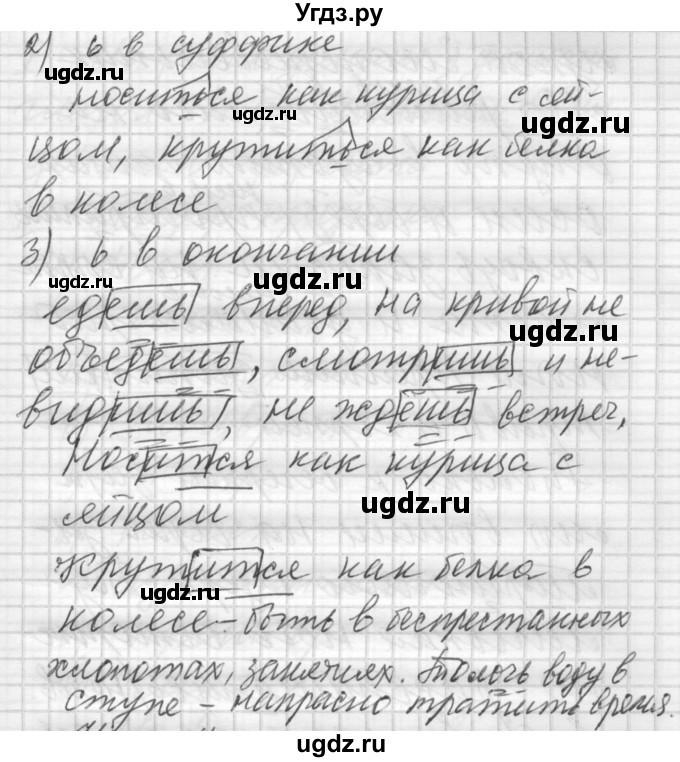 Угдз.ру
2) ь в суффиксе
носиться как курица с яй-
цом, крутиться как белка
в колесе
3) ь в окончании
едешь вперед, на кривой не
объедешь, смотришь и не-
видишь, не ждешь встреч,
Носится как курица с
яйцом
Крутится как белка в
колесе – быть в беспрестанных
хлопотах, занятиях. Толочь воду в
ступе – напрасно тратить время.
ugdz.ru
ugdz.ru
ugdz.ru
ugdz.ru
ugdz.ru
ugdz.ru
ugdz.ru
ugdz.ru
ugdz.ru
ugdz.ru
ugdz.ru
ugdz.ru
ugdz.ru